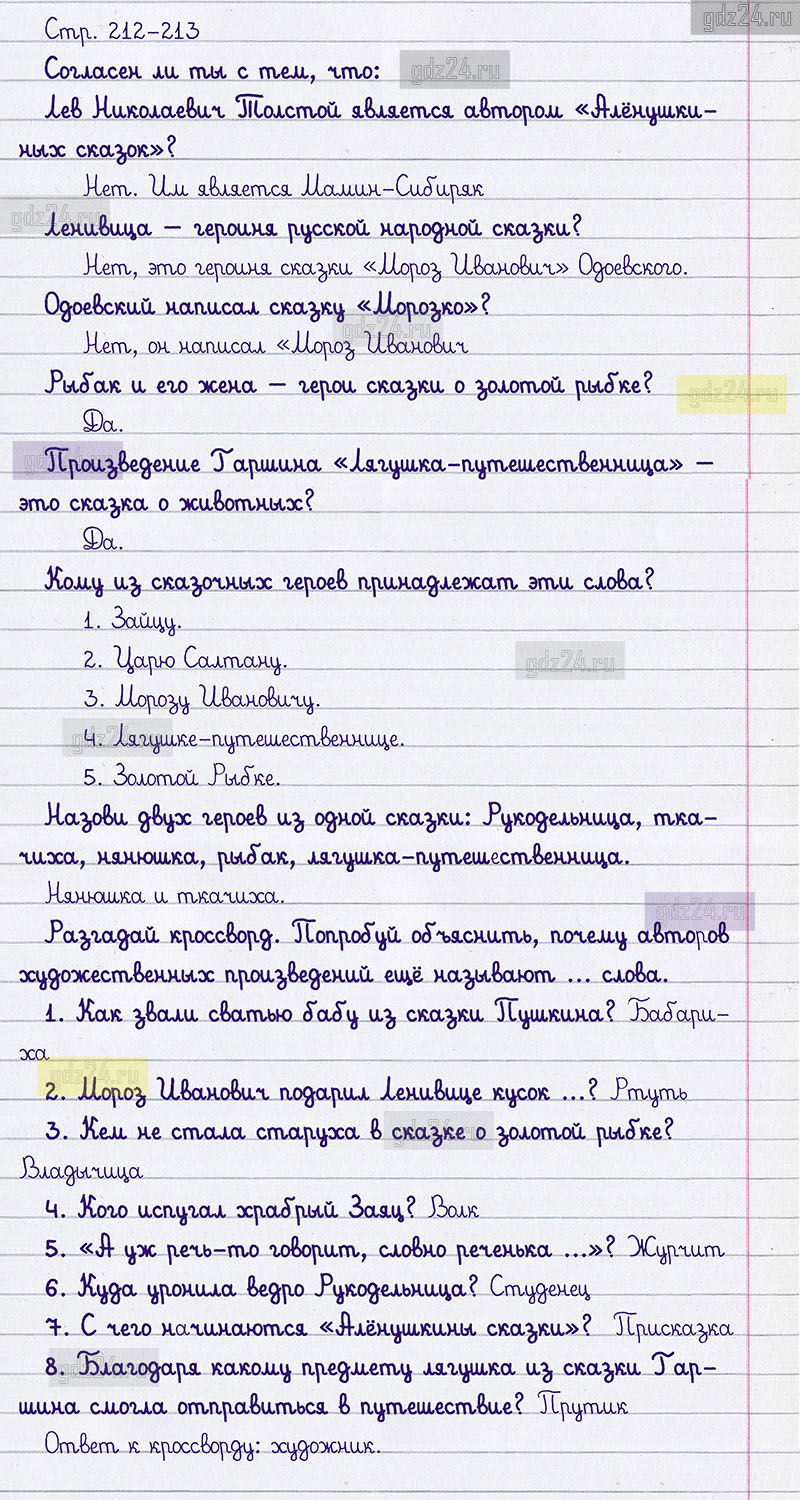 gdz24.ru
Стр. 212-213
Согласен ли ты с тем, что:
gdz24.ru
Лев Николаевич Толстой является автором «Алёнушки-
ных сказок»?
Нет. Им является Мамин-Сибиряк
gdz24.ru
Ленивица – героиня русской народной сказки?
Нет, это героиня сказки «Мороз Иванович» Одоевского.
Одоевский написал сказку «Морозко»?
gdz24.ru
Нет, он написал «Мороз Иванович
Рыбак и его жена – герои сказки о золотой рыбке?
gdz24.ru
Да.
gdz24.ru
Произведение Гаршина «Лягушка-путешественница» –
это сказка о животных?
Да.
Кому из сказочных героев принадлежат эти слова?
1. Зайцу.
2. Царю Салтану.
gdz24.ru
3. Морозу Ивановичу.
gdz24.ru
4. Лягушке-путешественнице.
5. Золотой Рыбке.
Назови двух героев из одной сказки: Рукодельница, тка-
чиха, нянюшка, рыбак, лягушка-путешественница.
Нянюшка и ткачиха.
gdz24.ru
Разгадай кроссворд. Попробуй объяснить, почему авторов
художественных произведений ещё называют ... слова.
1. Как звали сватью бабу из сказки Пушкина? Бабари-
ха
gdz24.ru
2. Мороз Иванович подарил Ленивице кусок ...? Ртуть
3. Кем не стала старуха в сказке о золотой рыбке?
gdz24.ru
Владычица
4. Кого испугал храбрый Заяц? Волк
5. «А уж речь-то говорит, словно реченька ...»? Журчит
6. Куда уронила ведро Рукодельница? Студенец
7. С чего начинаются «Алёнушкины сказки»? Присказка
8. Благодаря какому предмету лягушка из сказки Гар-
gdz24.ru
шина смогла отправиться в путешествие? Прутик
Ответ к кроссворду: художник.